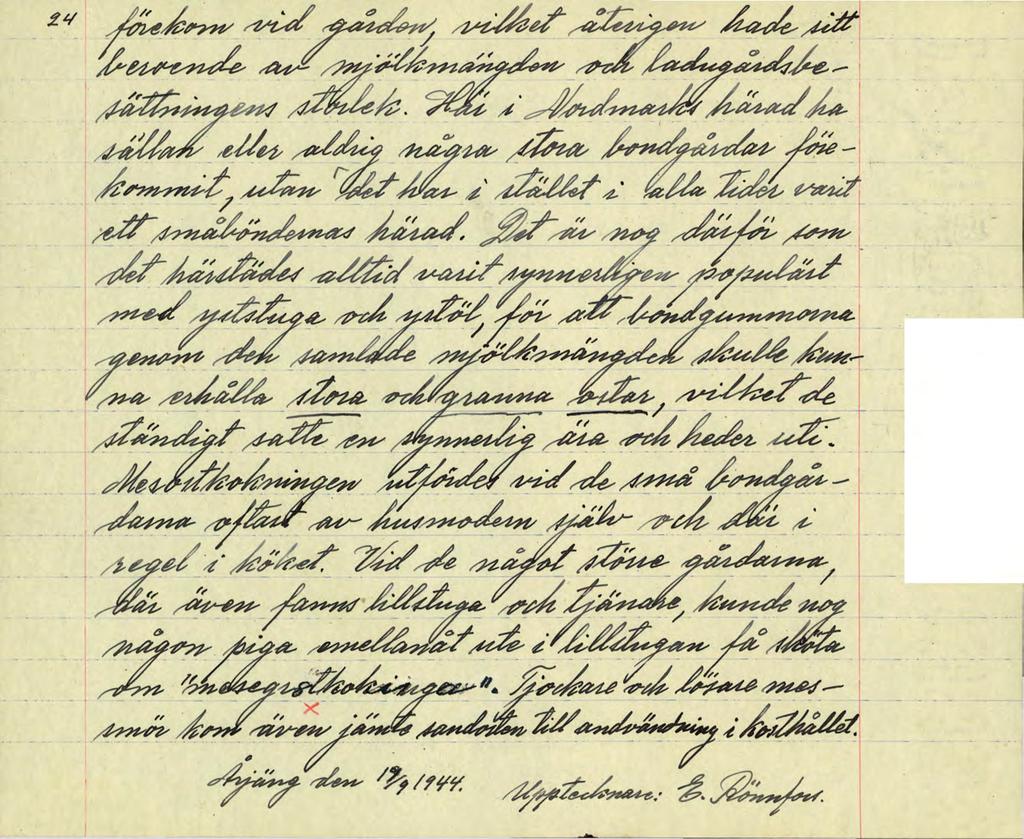 24
förekom vid gården, vilket återigen hade sitt
beroende av mjölkmängden och ladugårdsbe-
sättningens storlek. Här i Nordmarks härad ha
sällan eller aldrig några stora bondgårdar före-
kommit, utan det har i stället i alla tider varit
ett småböndernas härad. Det är nog därför som
det härstädes alltid varit synnerligen populärt
med yststuga och ystöl, för att bondgummorna
genom den samlade mjölkmängden skulle kun-
na erhålla stora och granna ostar, vilket de
ständigt satte en synnerlig ära och heder uti.
Mesostkokningen utfördes vid de små bondgår-
darna oftast av husmodern själv och där i
regel i köket. Vid de något större gårdarna,
där även fanns lillstuga och tjänare, kunde nog
någon piga emellanåt ute i lillstugan få sköta
om "mesegrötkokinga". Tjockare och lösare mes-
smör kom även jämte sandosten till andvändning i kosthållet.
Årjäng den 19/9 1944. Upptecknare: E. Rönnfors.